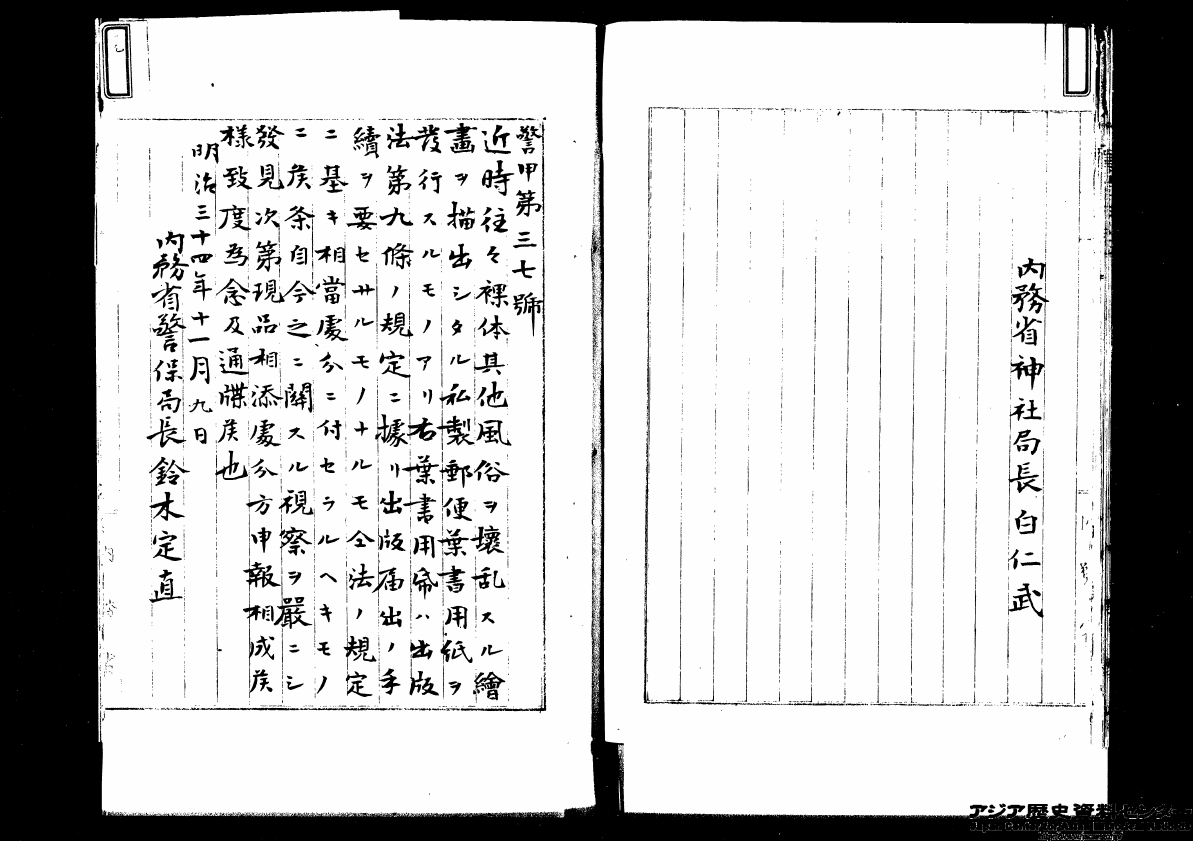 内務省神社局長白仁武
警甲第三七號
近時往々裸体其他風俗ヲ壞乱スル繪
畫ヲ描出シタル私製郵便葉書用紙ヲ
発行スルモノアリ右葉書用帋ハ出版
法第九條ノ規定ニ據リ出版届出ノ手
續ヲ要セサルモノナルモ仝法ノ規定
ニ基キ相當處分ニ付セラルヘキモノ
ニ候条自今之ニ關スル視察ヲ嚴ニシ
發見次第現品相添處分方申報相成候
様致度為念及通牒候也
明治三十四年十一月九日
内務省警保局長鈴木定直
アジア歴史資料センター